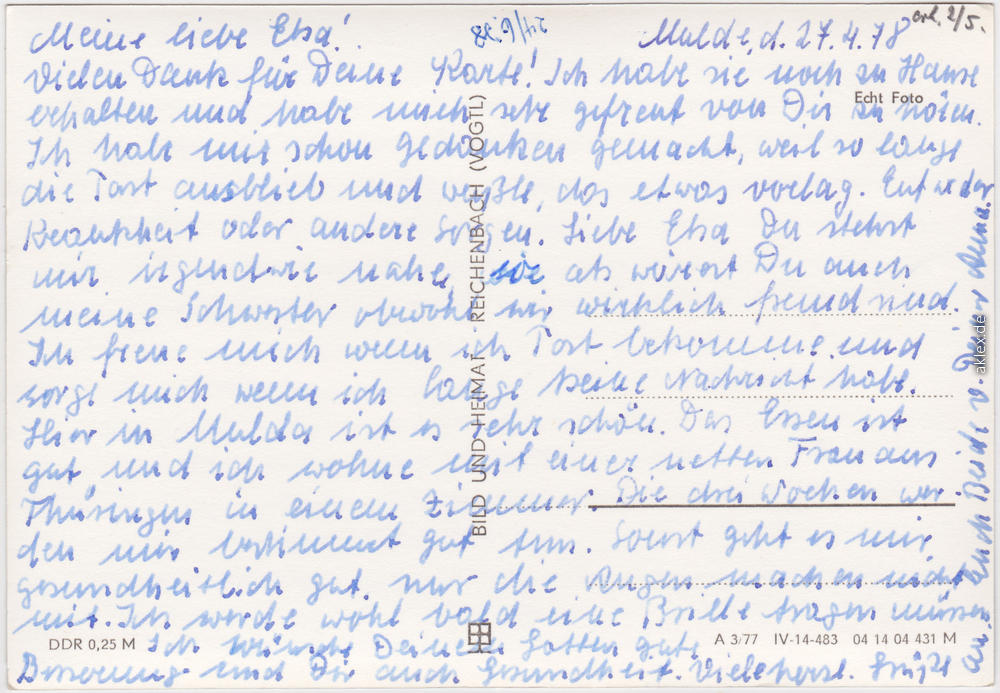 erh. 2/5.
24/6.78
Mulda, d. 27.4.78
Meine liebe Elsa!
Vielen Dank für Deine Karte! Ich habe sie noch zu Hause
Echt Foto
erhalten und habe mich sehr gefreut von Dir zu hören.
Ich habe mir schon Gedanken gemacht, weil so lange
die Post ausblieb und wußte, das etwas vorlag. Entweder
Krankheit oder andere Sorgen. Liebe Elsa Du stehst
mir irgendwie nahe, so als wärest Du auch
meine Schwester obwohl wir wirklich fremd sind.
Ich freue mich wenn ich Post bekomme und
sorge mich wenn ich lange keine Nachricht habe.
Hier in Mulda ist es sehr schön. Das Essen ist
gut und ich wohne mit einer netten Frau aus
Thüringen in einem Zimmer. Die drei Wochen wer-
den mir bestimmt gut tun. Sonst geht es mir
gesundheitlich gut, nur die Augen machen nicht
mit. Ich werde wohl bald eine Brille tragen müssen
Ich wünsche Deinem Gatten gute
Besserung und Dir auch Gesundheit. Viele herzl. Grüße
an Euch Beide v. Deiner Anna.
BILD UND HEIMAT REICHENBACH (VOGTL)
DDR 0,25 M
A 3/77 IV-14-483 04 14 04 431 M
aklex.de